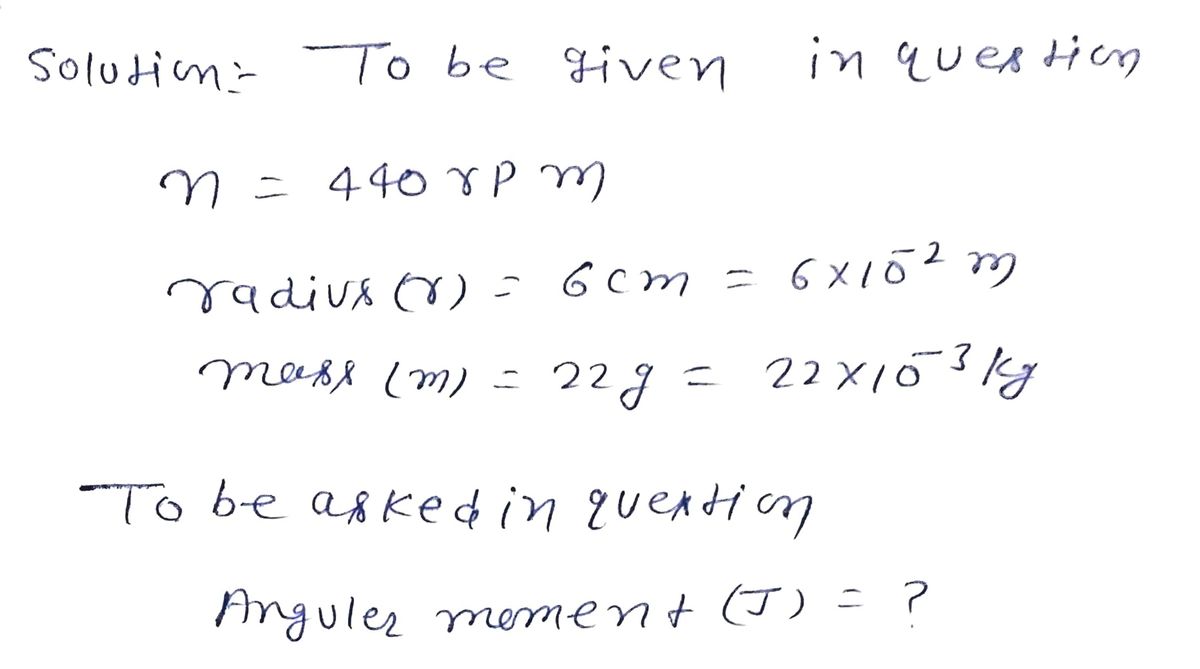 Solution:- To be given in question
n = 440 rpm
radius (r) = 6cm = 6×10⁻² m
mass (m) = 22g = 22×10⁻³ kg
To be asked in question
Anguler moment (J) = ?